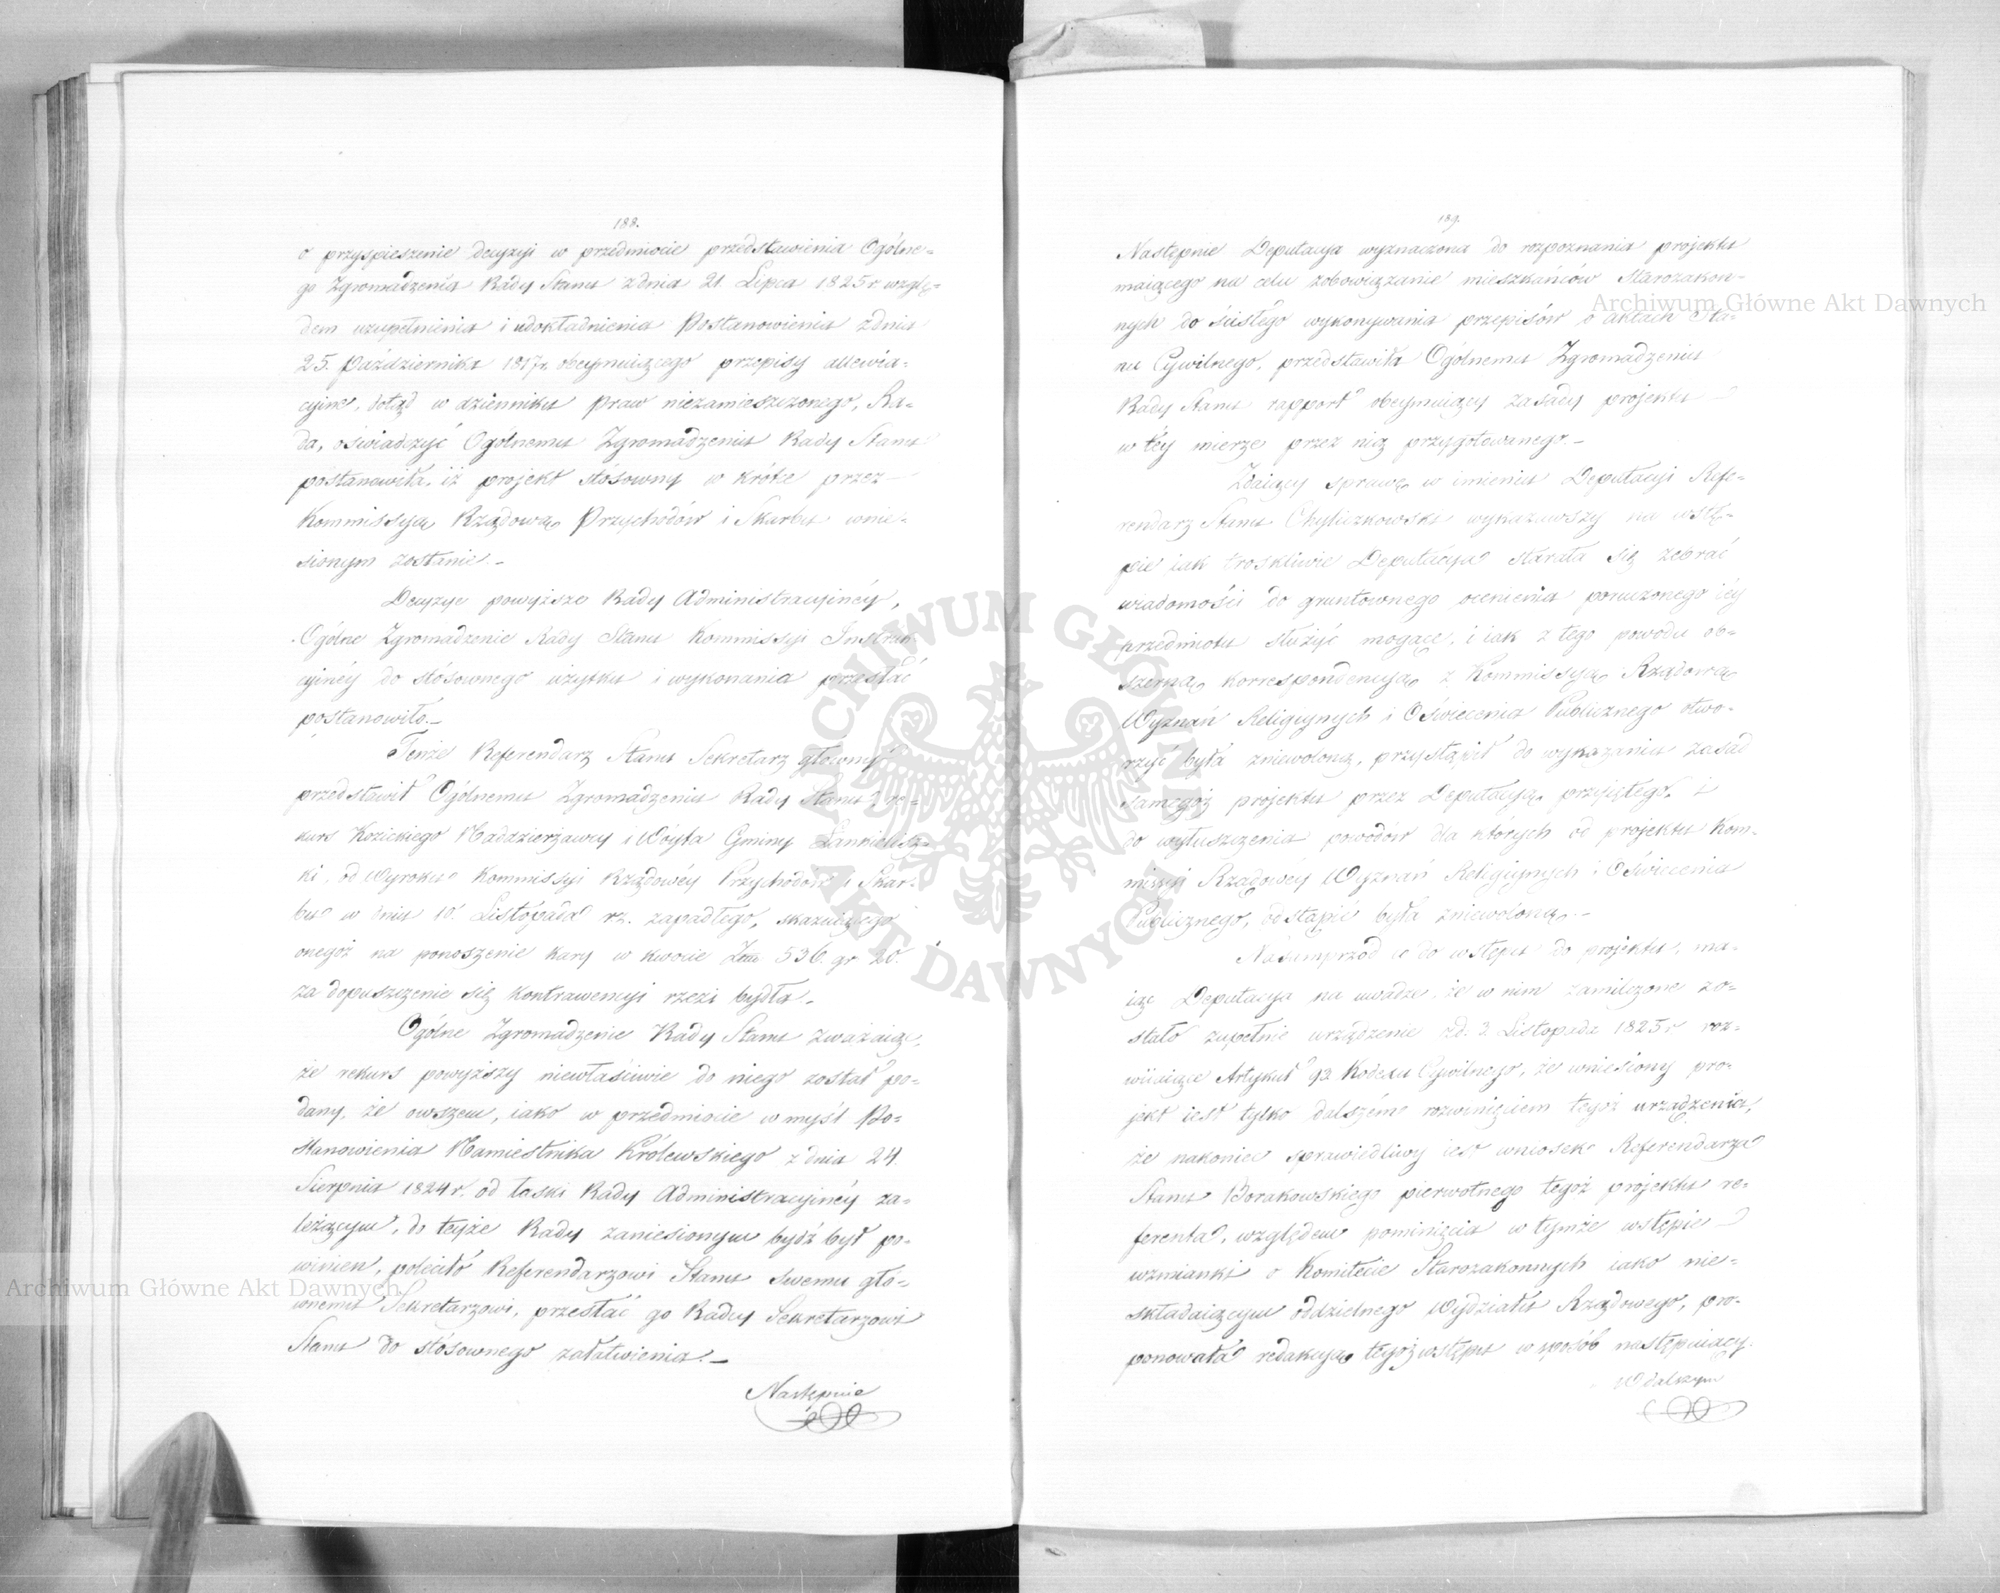 188.
o przyspieszenie decyzyi w przedmiocie przedstawienia Ogólne-
go Zgromadzenia Rady Stanu z dnia 21. Lipca 1825 r. wzglę-
dem uzupełnienia i udokładnienia Postanowienia z dnia
25. Października 1817 r. obeymuiącego przepisy allewia-
cyine, dotąd w dzienniku Praw niezamieszczonego, Ra-
da, oświadczyć Ogólnemu Zgromadzeniu Rady Stanu
postanowiła, iż projekt stósowny w krótce przez
Kommissyą Rządową Przychodów i Skarbu wnie-
sionym zostanie.
Decyzye powyższe Rady Administracyinéy,
Ogólne Zgromadzenie Rady Stanu Kommissyi Instruk
cyinéy do stósownego użytku i wykonania przesłać
postanowiło.
Tenże Referendarz Stanu Sekretarz główny
przedstawił Ogólnemu Zgromadzeniu Rady Stanu re-
kurs Kozickiego Naddzierżawcy i Wóyta Gminy
ki, od Wyroku Kommissyi Rządowéy Przychodów i Skar-
bu w dniu 10. Listopada r. z. zapadłego, skazuiącego
onegóż na ponoszenie kary w kwocie 536. gr 20.
za dopuszczenie się kontrawencyi rzezi bydła.
Ogólne Zgromadzenie Rady Stanu zważaiąc,
że rekurs powyższy niewłaściwie do niego został po-
dany, że owszem, iako w przedmiocie w myśl Po-
stanowienia Namiestnika Królewskiego z dnia 24.
Sierpnia 1824 r. od łaski Rady Administracyinéy za-
leżącym, do teyże Rady zaniesionym bydź był po-
winien, poleciło Referendarzowi Stanu swemu głó-
wnemu Sekretarzowi, przesłać go Radcy Sekretarzowi
Stanu do stósownego załatwienia.
Następnie
189.
Następnie Deputacya wyznaczona do rozpoznania projektu
maiącego na celu zobowiązanie mieszkańców Starozakon-
nych do ścisłego wykonywania przepisów o aktach Sta-
nu Cywilnego, przedstawiła Ogólnemu Zgromadzeniu
Rady Stanu rapport obeymuiący zasady projektu
w téy mierze przez nią przygotowanego.
Zdaiący sprawę w imieniu Deputacyi Refe-
rendarz Stanu Chyliczkowski wykazawszy na wstę-
pie iak troskliwie Deputacya starała się zebrać
wiadomości do gruntownego ocenienia poruczonego iéy
przedmiotu służyć mogące, i iak z tego powodu ob-
szerną korrespondencyą z Kommissyą Rządową
Wyznań Religiynych i Oświecenia Publicznego otwo-
rzyć była zniewoloną, przystąpił do wykazania zasad
samegóż projektu przez Deputacyą przyiętego, i
do wyłuszczenia powodów dla których od projektu Kom-
missyi Rządowéy Wyznań Religiynych i Oświecenia
Publicznego, odstąpić była zniewoloną.
Nasamprzód co do wstępu do projektu, ma-
iąc Deputacya na uwadze, że w nim zamilczone zo-
stało zupełnie urządzenie z d. 3. Listopada 1825 r. roz-
wiiaiące Artykuł 93 Kodexu Cywilnego, że wniesiony pro-
jekt iest tylko dalszém rozwinięciem tegóż urządzenia,
że nakoniec sprawiedliwy iest wniosek Referendarza
Stanu Borakowskiego pierwotnego tegóż projektu re-
ferenta, względem pominięcia w tymże wstępie
wzmianki o Komitecie Starozakonnych iako nie-
składaiącym oddzielnego Wydziału Rządowego, pro-
ponowała redakcyą tegóż wstępu w sposób następuiący.
W dalszym
Archiwum Główne Akt Dawnych
Archiwum Główne Akt Dawnych
ARCHIWUM GŁÓWNE
AKT DAWNYCH